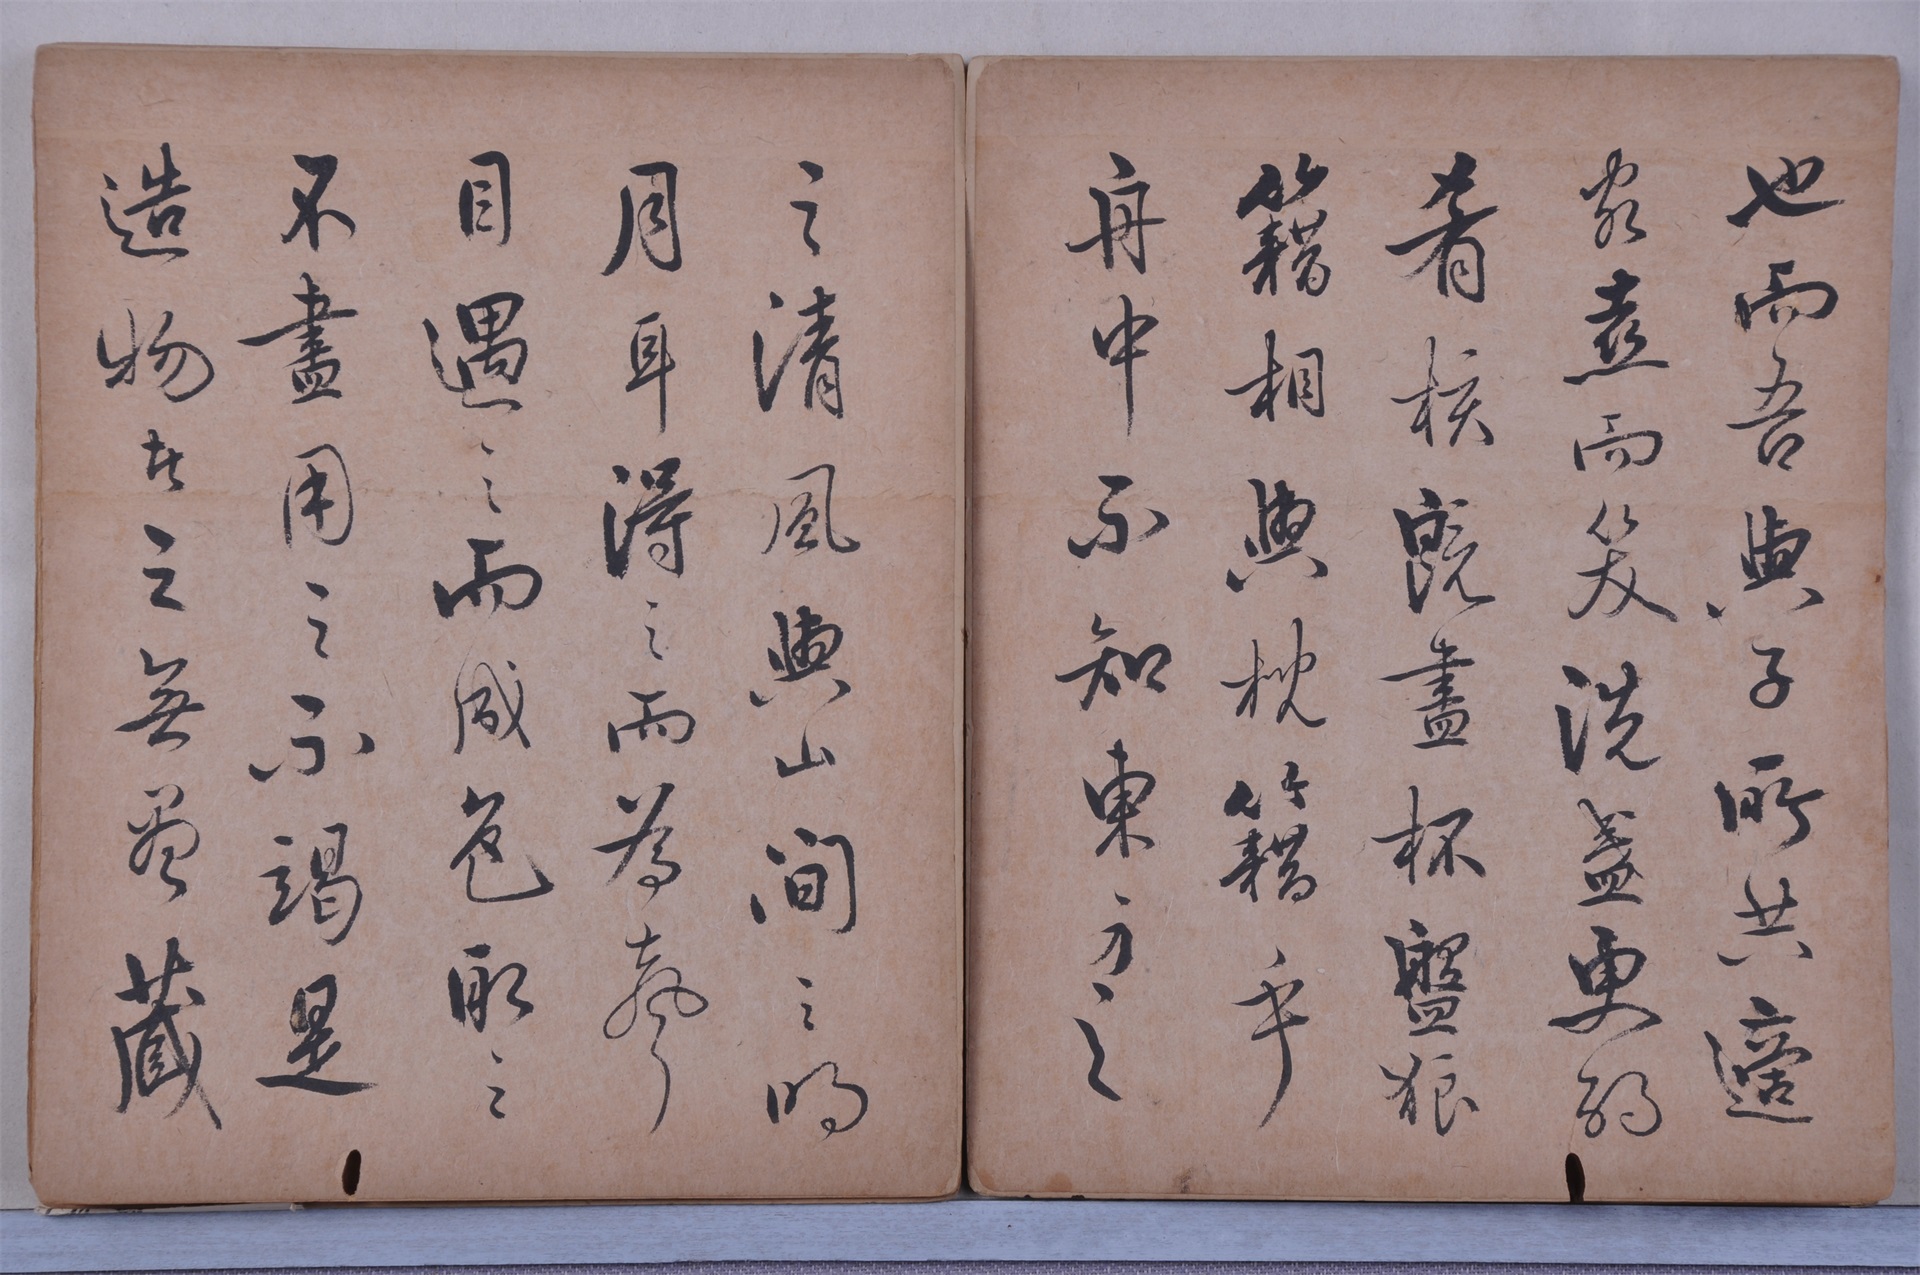 之清風與山間之明
月耳得之而為聲
目遇之而成色取之
不盡用之不竭是
造物者之無盡藏
也而吾與子所共適
客喜而笑洗盞更酌
肴核既盡杯盤狼
籍相與枕籍乎
舟中不知東方之